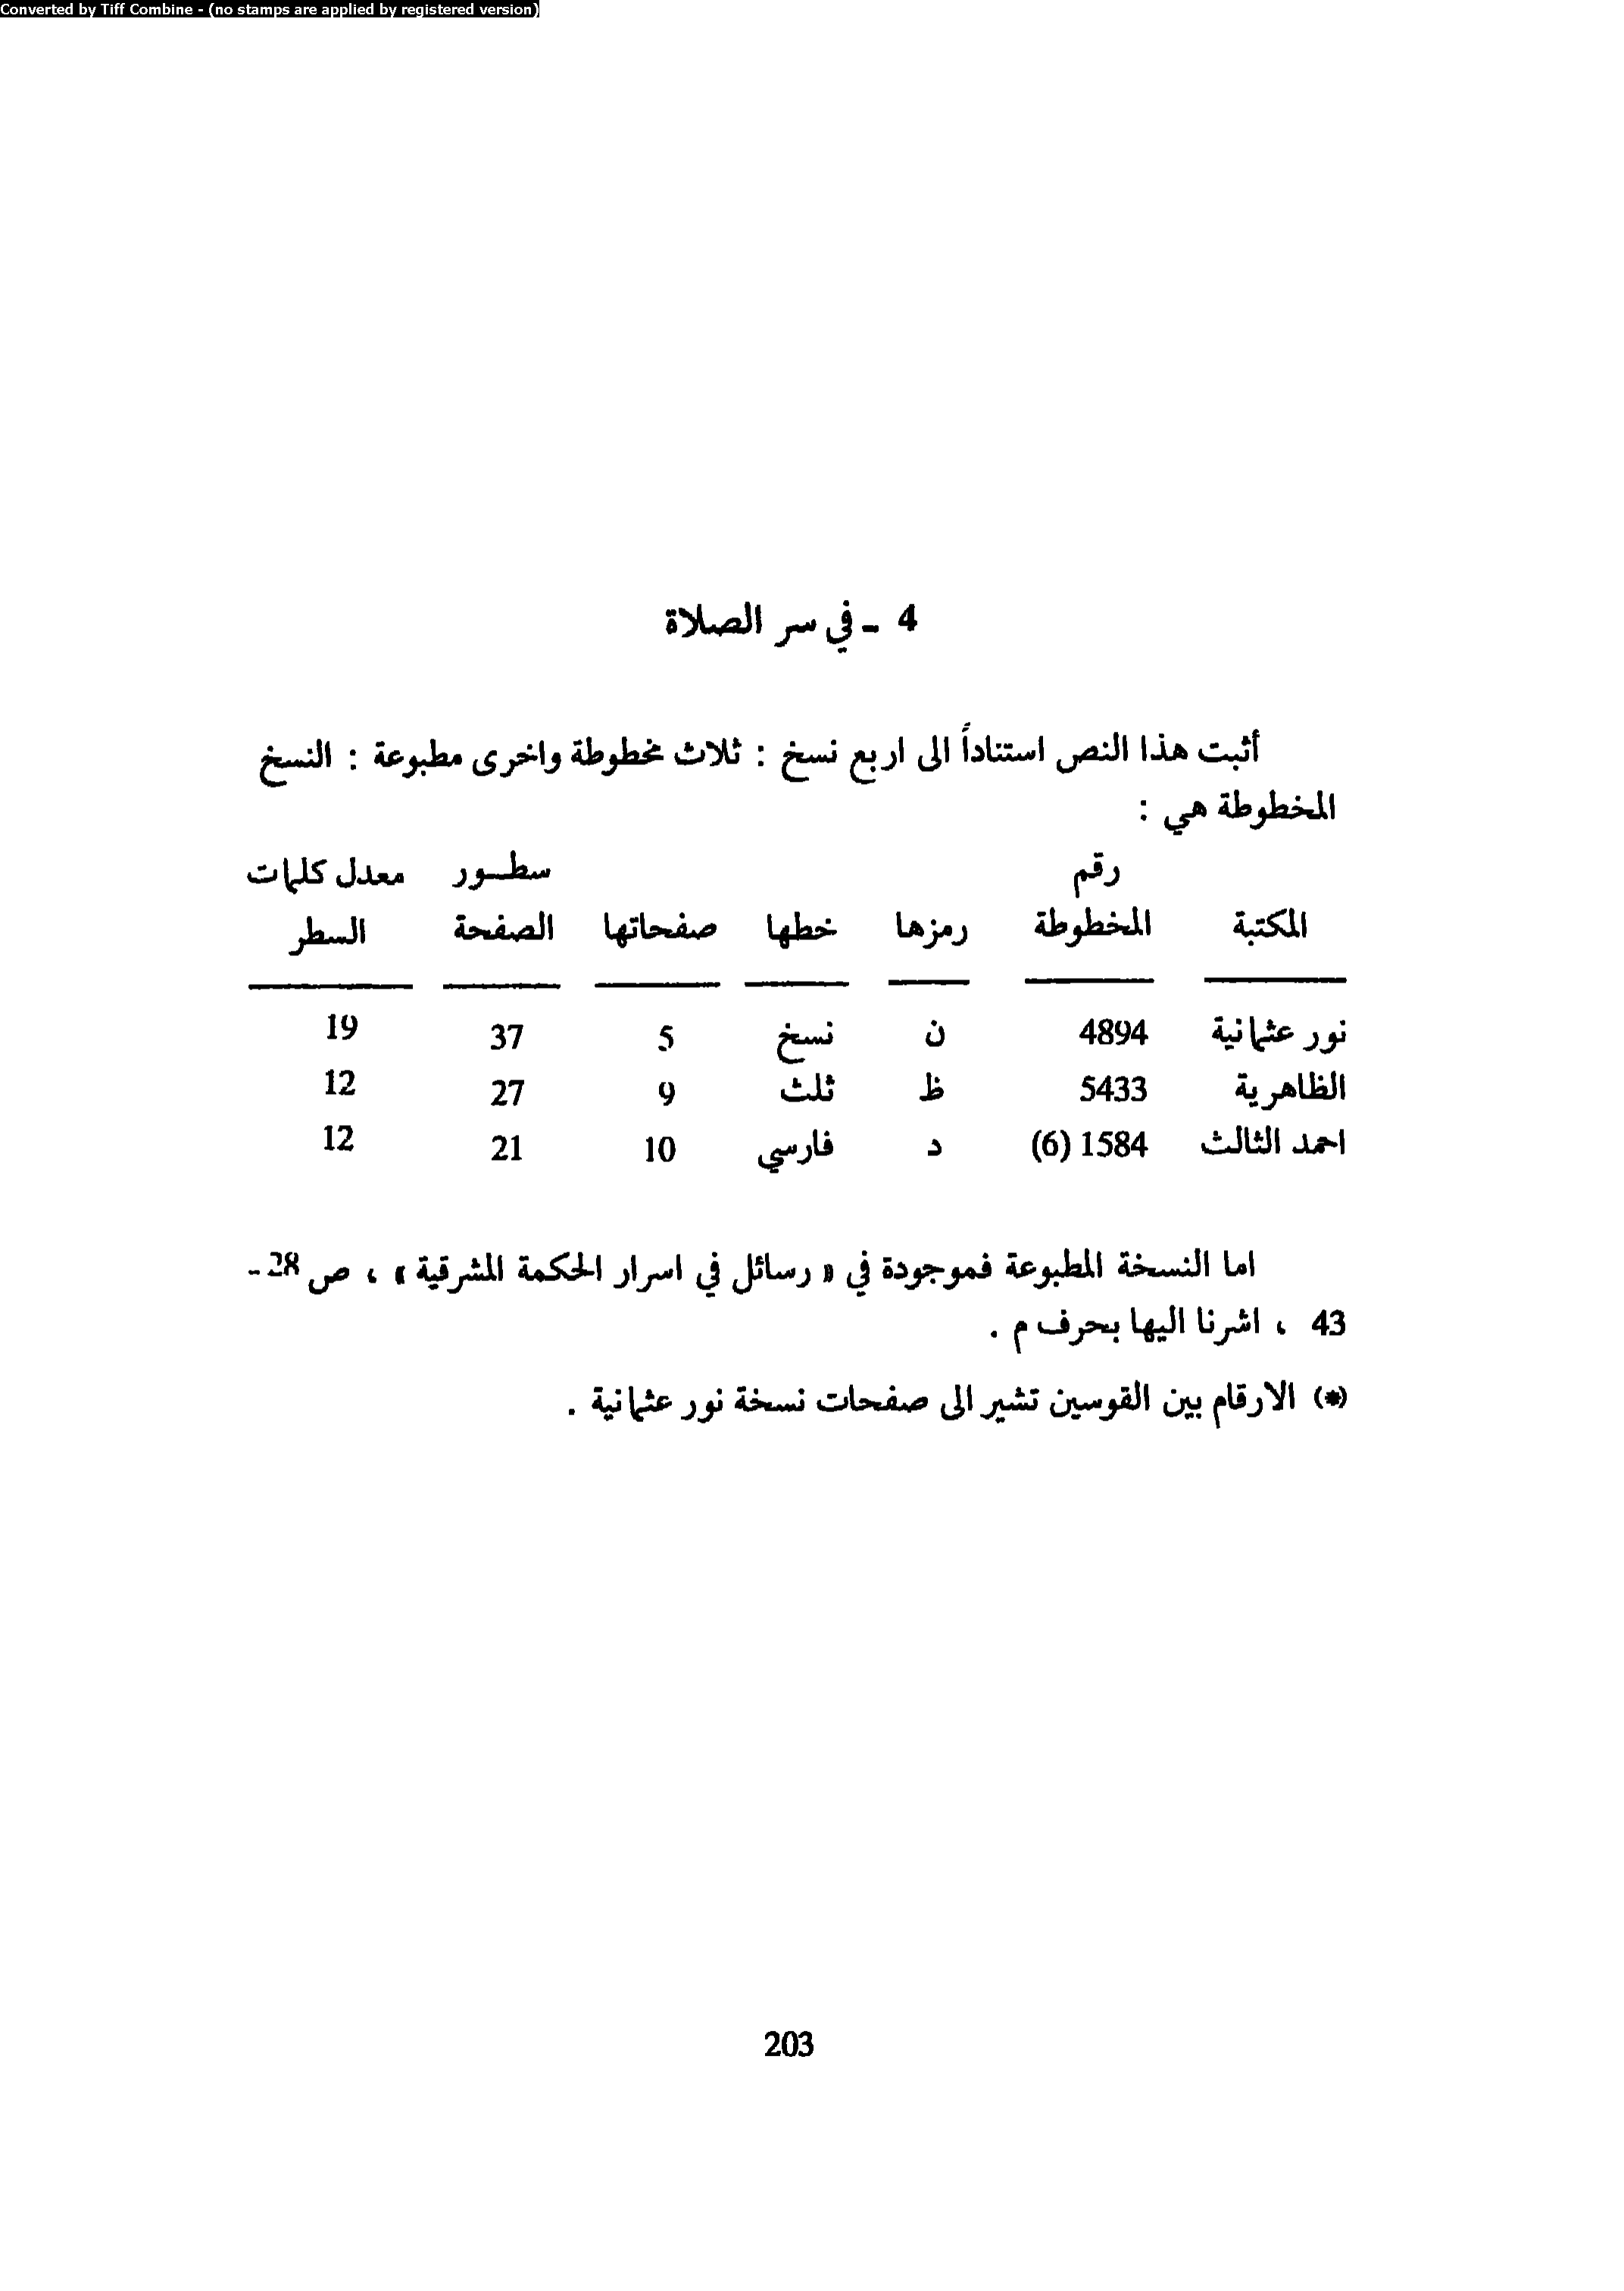 Converted by Tiff Combine - (no stamps are applied by registered version)
4 - في سر الصلاة
أثبت هذا النص استناداً الى اربع نسخ : ثلاث مخطوطة واخرى مطبوعة : النسخ
المخطوطة هي :
رقم سطــور معدل كلمات
المكتبة المخطوطة رمزها خطها صفحاتها الصفحة السطر
نور عثمانية 4894 ن نسخ 5 37 19
الظاهرية 5433 ظ ثلث 9 27 12
احمد الثالث 1584 (6) د فارسي 10 21 12
اما النسخة المطبوعة فموجودة في « رسائل في اسرار الحكمة المشرقية » ، ص 28 -
43 ، اشرنا اليها بحرف م .
(*) الارقام بين القوسين تشير الى صفحات نسخة نور عثمانية .
203